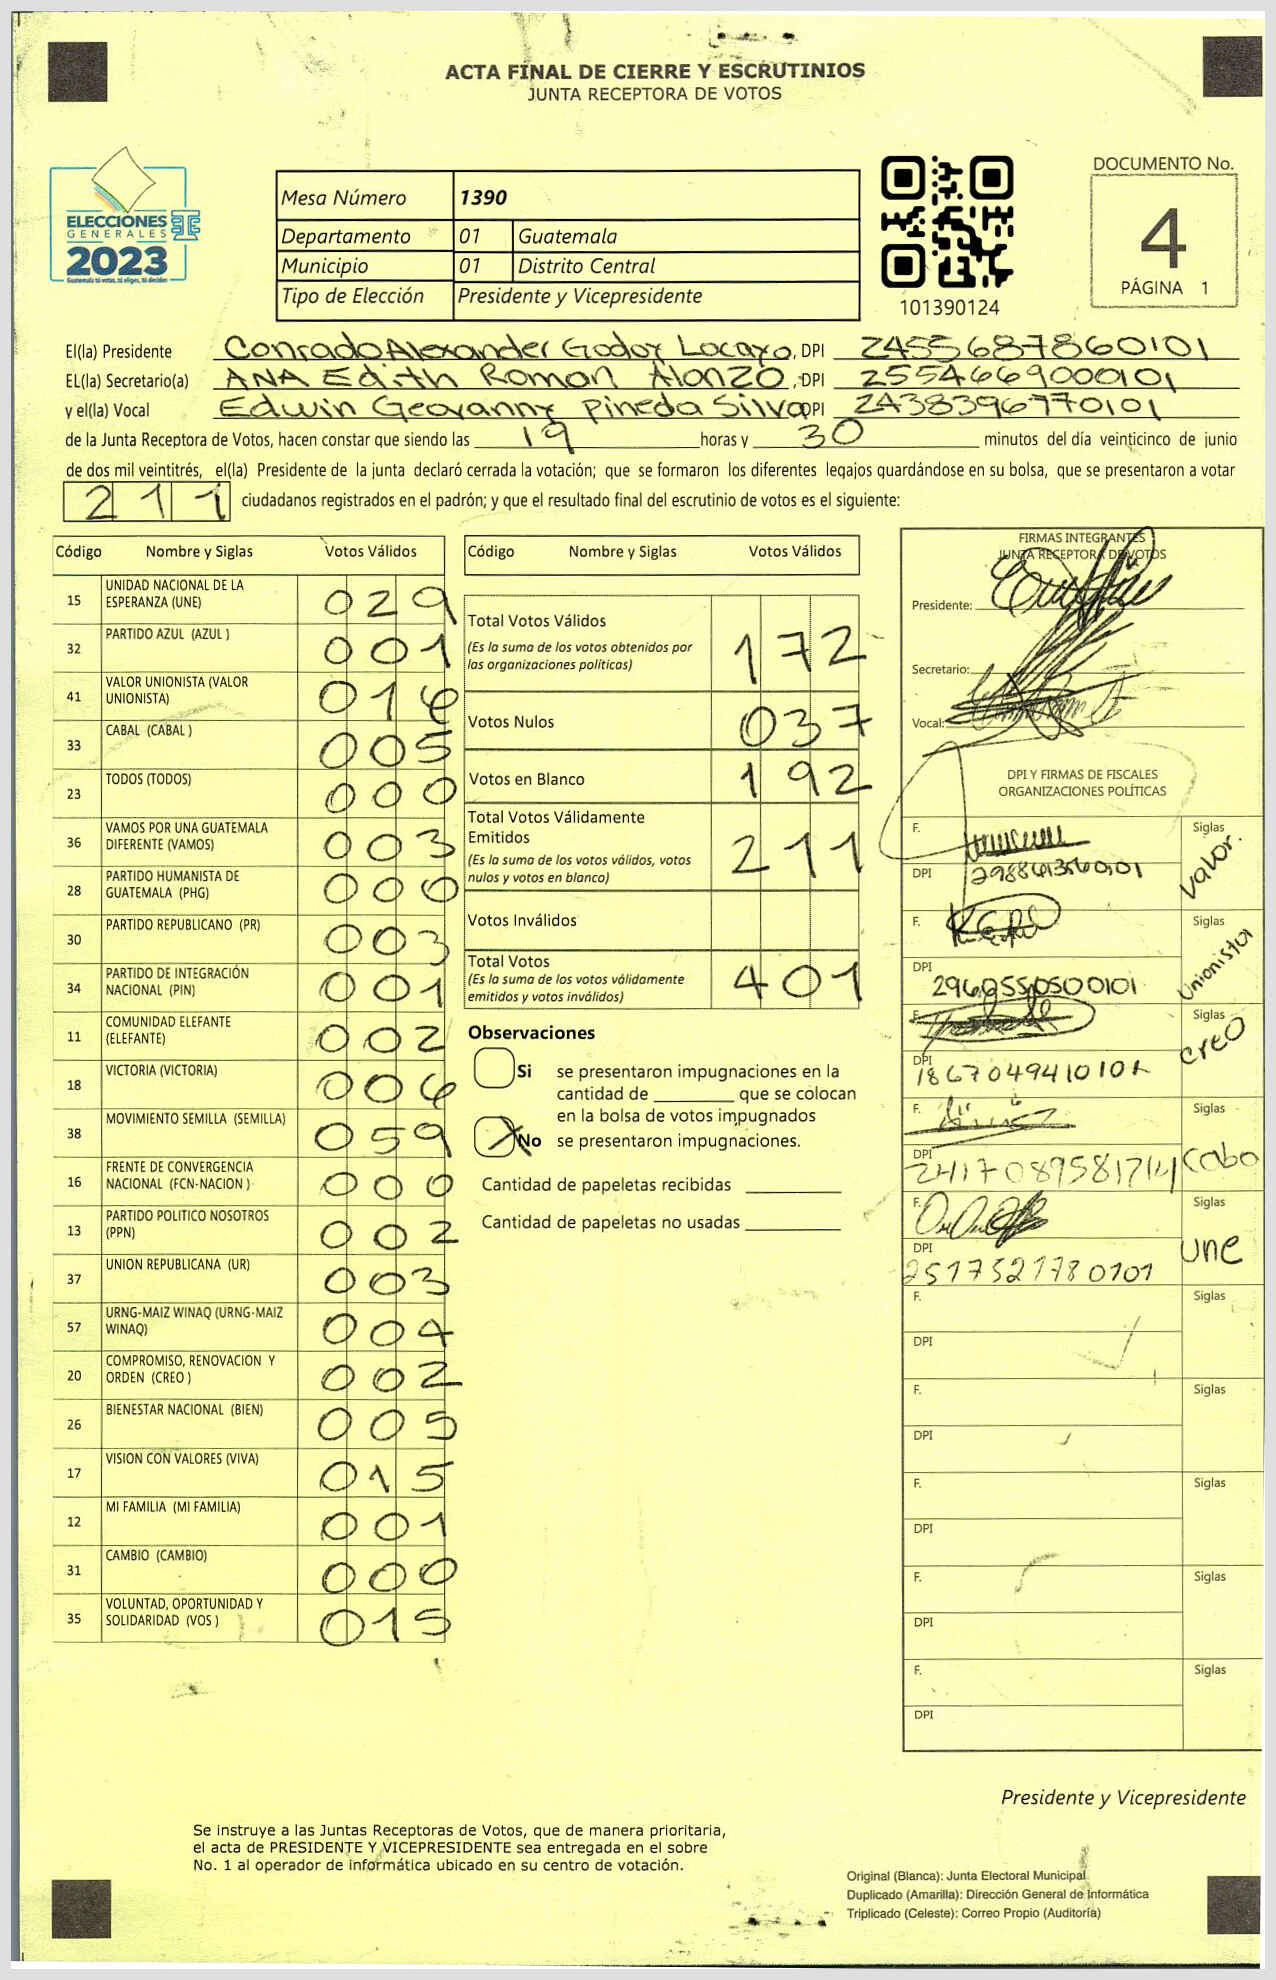 ACTA FINAL DE CIERRE Y ESCRUTINIOS
JUNTA RECEPTORA DE VOTOS
ELECCIONES
GENERALES
2023
Guatemala tú votas, tú eliges, tú decides
Mesa Número 1390
Departamento 01 Guatemala
Municipio 01 Distrito Central
Tipo de Elección Presidente y Vicepresidente
101390124
DOCUMENTO No.
4
PÁGINA 1
El(la) Presidente Conrado Alexander Godoy Locayo, DPI 2455687860101
EL(la) Secretario(a) ANA Edith Roman Alonzo, DPI 2554669000101
y el(la) Vocal Edwin Geovanny Pineda Silva DPI 2438396770101
de la Junta Receptora de Votos, hacen constar que siendo las 19 horas y 30 minutos del día veinticinco de junio
de dos mil veintitrés, el(la) Presidente de la junta declaró cerrada la votación; que se formaron los diferentes legajos quardándose en su bolsa, que se presentaron a votar
211 ciudadanos registrados en el padrón; y que el resultado final del escrutinio de votos es el siguiente:
Código Nombre y Siglas Votos Válidos
15 UNIDAD NACIONAL DE LA ESPERANZA (UNE) 029
32 PARTIDO AZUL (AZUL ) 001
41 VALOR UNIONISTA (VALOR UNIONISTA) 016
33 CABAL (CABAL ) 005
23 TODOS (TODOS) 000
36 VAMOS POR UNA GUATEMALA DIFERENTE (VAMOS) 003
28 PARTIDO HUMANISTA DE GUATEMALA (PHG) 000
30 PARTIDO REPUBLICANO (PR) 003
34 PARTIDO DE INTEGRACIÓN NACIONAL (PIN) 001
11 COMUNIDAD ELEFANTE (ELEFANTE) 002
18 VICTORIA (VICTORIA) 006
38 MOVIMIENTO SEMILLA (SEMILLA) 059
16 FRENTE DE CONVERGENCIA NACIONAL (FCN-NACION ) 000
13 PARTIDO POLITICO NOSOTROS (PPN) 002
37 UNION REPUBLICANA (UR) 003
57 URNG-MAIZ WINAQ (URNG-MAIZ WINAQ) 004
20 COMPROMISO, RENOVACION Y ORDEN (CREO ) 002
26 BIENESTAR NACIONAL (BIEN) 005
17 VISION CON VALORES (VIVA) 015
12 MI FAMILIA (MI FAMILIA) 001
31 CAMBIO (CAMBIO) 000
35 VOLUNTAD, OPORTUNIDAD Y SOLIDARIDAD (VOS ) 015
Código Nombre y Siglas Votos Válidos
Total Votos Válidos 172
(Es la suma de los votos obtenidos por las organizaciones políticas)
Votos Nulos 037
Votos en Blanco 192
Total Votos Válidamente Emitidos 211
(Es la suma de los votos válidos, votos nulos y votos en blanco)
Votos Inválidos
Total Votos 401
(Es la suma de los votos válidamente emitidos y votos inválidos)
Observaciones
Si se presentaron impugnaciones en la
cantidad de ________ que se colocan
en la bolsa de votos impugnados
X No se presentaron impugnaciones.
Cantidad de papeletas recibidas
Cantidad de papeletas no usadas
FIRMAS INTEGRANTES
JUNTA RECEPTORA DE VOTOS
Presidente:
Secretario:
Vocal:
DPI Y FIRMAS DE FISCALES
ORGANIZACIONES POLÍTICAS
F. Siglas valor.
DPI
F. Siglas Unionista
DPI 2960555050101
F. Siglas creo
DPI 1867049410101
F. Siglas
DPI 2417089581714
F. Siglas une
DPI 2517521780101
F. Siglas
DPI
F. Siglas
DPI
F. Siglas
DPI
F. Siglas
DPI
F. Siglas
DPI
Presidente y Vicepresidente
Se instruye a las Juntas Receptoras de Votos, que de manera prioritaria,
el acta de PRESIDENTE Y VICEPRESIDENTE sea entregada en el sobre
No. 1 al operador de informática ubicado en su centro de votación.
Original (Blanca): Junta Electoral Municipal
Duplicado (Amarilla): Dirección General de Informática
Triplicado (Celeste): Correo Propio (Auditoría)